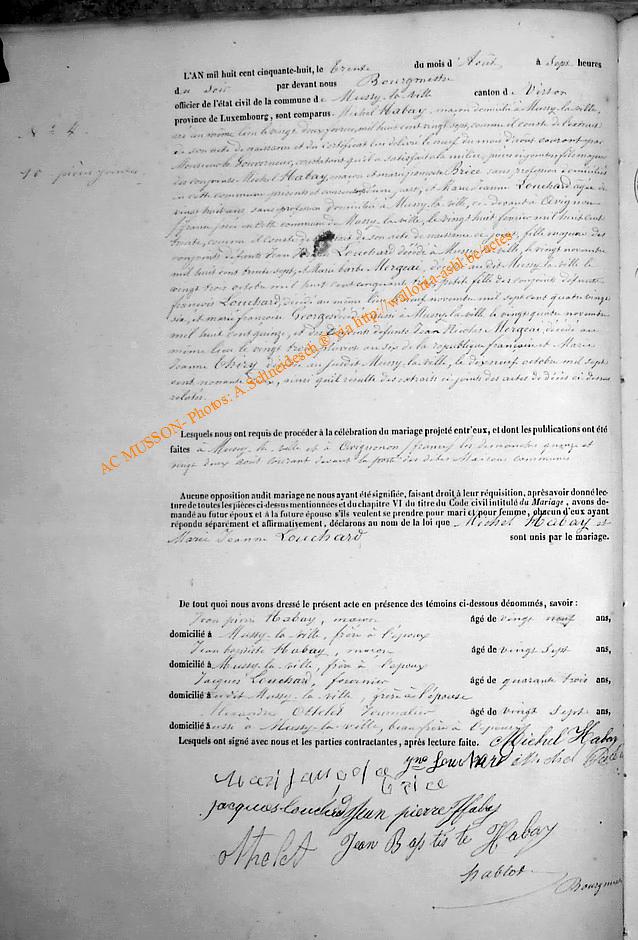 L'AN mil huit cent cinquante-huit, le trente du mois d'Août à Sept heures
du soir par devant nous Bourgmestre
officier de l'état civil de la commune de Mussy-la-ville canton de Virton
province de Luxembourg, sont comparus Michel Habay, maçon domicilié à Mussy-la-ville,
N° 4.
né au même lieu le vingt deux février, mil huit cent vingt sept, comme il conste de l'extrait
de son acte de naissance et du certificat lui délivré le neuf du mois d'août courant par
Monsieur le Gouverneur, constatant qu'il a satisfait à la milice,
10 pièces jointes
Michel Habay, maçon et marie jeanne Brice sans profession domiciliés
en cette commune présents et consentants d'une part, et Marie Jeanne Louchard âgée de
vingt huit ans, sans profession domiciliée à Mussy-la-ville,
en cette commune de Mussy-la-ville, le vingt huit février mil huit cent
trente, comme il conste de son acte de naissance fille majeure des
conjoints défunts Jean Louchard décédé à Mussy-la-ville, le vingt novembre
mil huit cent trente sept, et Marie barbe Mergeai, Mussy-la-ville le
vingt trois octobre mil huit cent cinquante petite fille des conjoints défunts
françois Louchard, décédé au même lieu novembre mil sept cent quatre vingt
six, et marie françoise Georges décédée à Mussy-la-ville le vingt quatre novembre
mil huit cent quinze, et des conjoints défunts Jean Nicolas Mergeai, décédé au
même lieu le vingt trois nivose an six de la république française et Marie
Jeanne Thiry, décédée au susdit Mussy-la-ville, le dix neuf octobre mil sept
cent nonante deux, ainsi qu'il résulte des extraits ci joints des actes de décès ci dessus
relatés.
AC MUSSON- Photos: A.Schneidesch ® Via http://wallonia-asbl.be-actes
Lesquels nous ont requis de procéder à la célébration du mariage projeté entr'eux, et dont les publications ont été
faites à Mussy-la-ville et à (france) les dimanches quinze et
vingt deux août courant devant la porte des dites Maisons communes
Aucune opposition audit mariage ne nous ayant été signifiée, faisant droit à leur réquisition, après avoir donné lec-
ture de toutes les pièces ci-dessus mentionnées et du chapitre VI du titre du Code civil intitulé du Mariage, avons de-
mandé au futur époux et à la future épouse s'ils veulent se prendre pour mari et pour femme, chacun d'eux ayant
répondu séparement et affirmativement, déclarons au nom de la loi que Michel Habay et
Marie Jeanne Louchard sont unis par le mariage.
De tout quoi nous avons dressé le présent acte en présence des témoins ci-dessous dénommés, savoir :
Jean pierre Habay, maçon âgé de vingt neuf ans,
domicilié à Mussy-la-ville, frère à l'époux
Jean baptiste Habay, maçon âgé de vingt sept ans,
domicilié à Mussy-la-ville, frère à l'époux
Jacques Louchard, journalier âgé de quarante trois ans,
domicilié à susdit Mussy-la-ville, frère à l'épouse
Othelet Journalier âgé de vingt sept ans,
domicilié aussi à Mussy-la-ville, beau frère à l'épouse
Lesquels ont signé avec nous et les parties contractantes, après lecture faite. Michel Habay
Louchard Michel
Brice
jacques louchard Jean pierre Habay
Othelet Jean Baptiste Habay
hablot
Bourgmestre